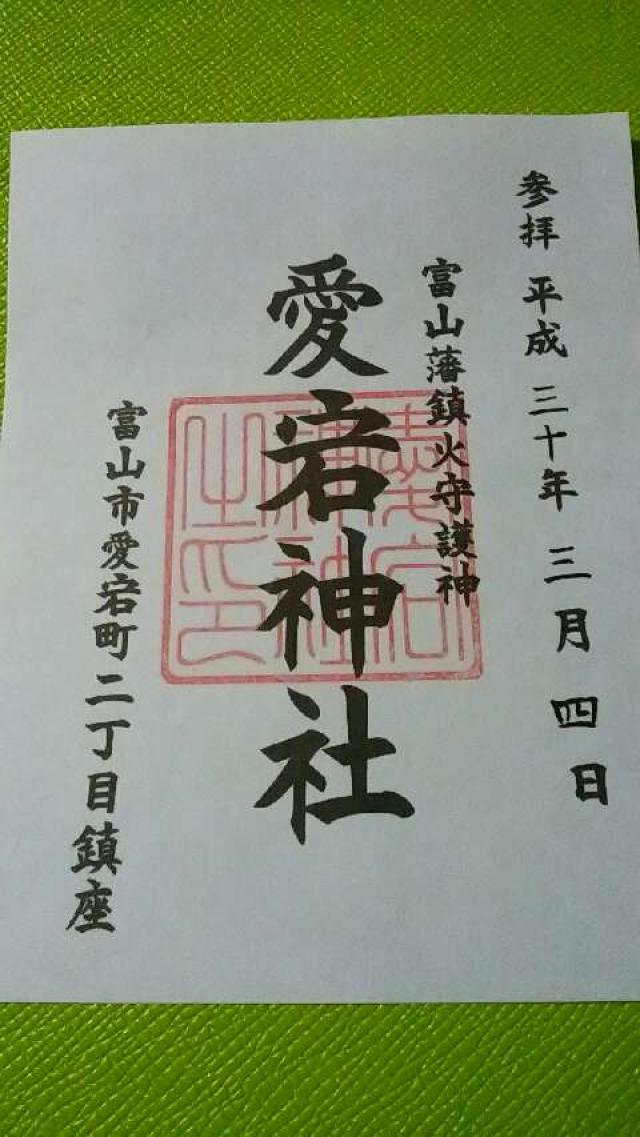 参拝 平成 三十年 三月 四日
富山藩鎮火守護神
愛宕神社
愛宕神社之印
富山市愛宕町二丁目鎮座